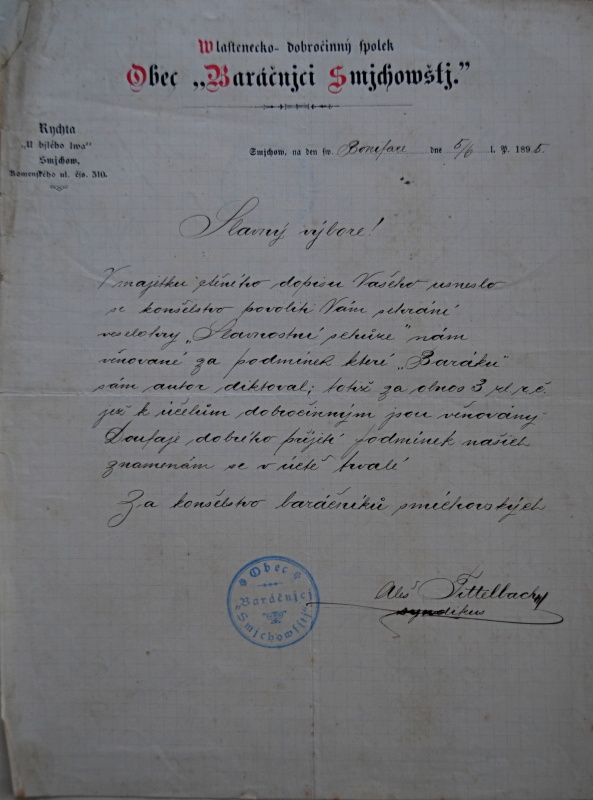 Wlastenecko- dobročinný spolek
Obec „Baráčnjci Smjchowštj.“
Rychta
„U bjlého lwa“
Smjchow,
Komenského ul. čís. 310.
Smjchow, na den sw. Boniface dne 5/6 l. P. 1895.
Slavný výbore!
V majetku ctěného dopisu Vašeho usneslo
se konšelstvo povoliti Vám sehrání
veselohry „Slavnostní schůze“ nám
věnované za podmínek které „Baráku“
sám autor diktoval; totiž za obnos 3 zl r.č.
jež k účelům dobročinným jsou věnovány.
Doufaje dobrého přijetí podmínek našich
znamenám se v úctě trvalé
Za konšelstvo baráčníků smíchovských
Obec
„Baráčnjci
Smjchowštj“
Aleš Tittelbach
syndikus